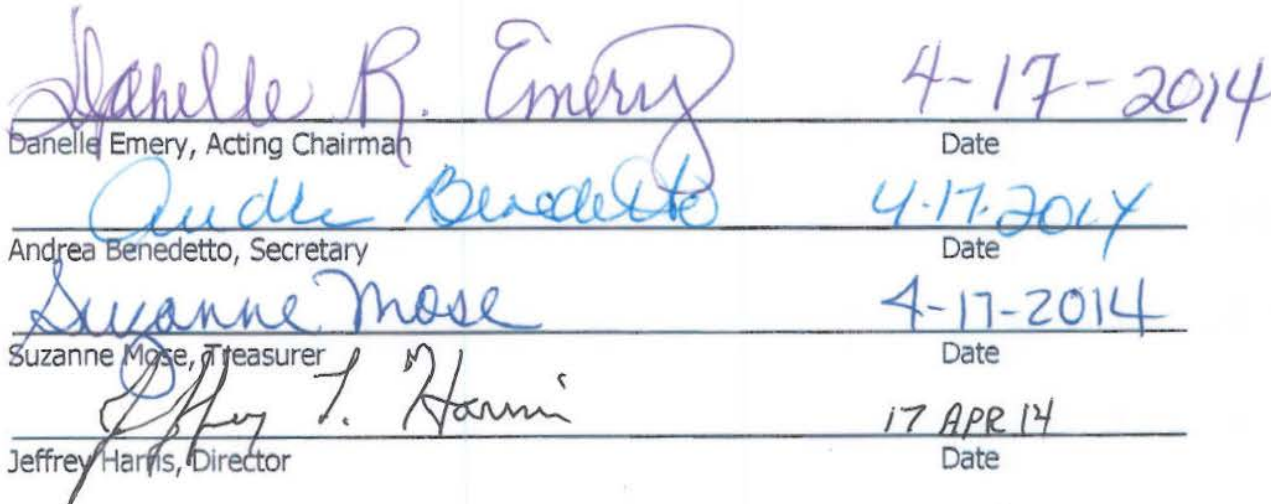 Danelle R. Emery 4-17-2014
Danelle Emery, Acting Chairman Date
Andrea Benedetto 4.17.2014
Andrea Benedetto, Secretary Date
Suzanne Mose 4-17-2014
Suzanne Mose, Treasurer Date
Jeffrey T. Harris 17 APR 14
Jeffrey Harris, Director Date